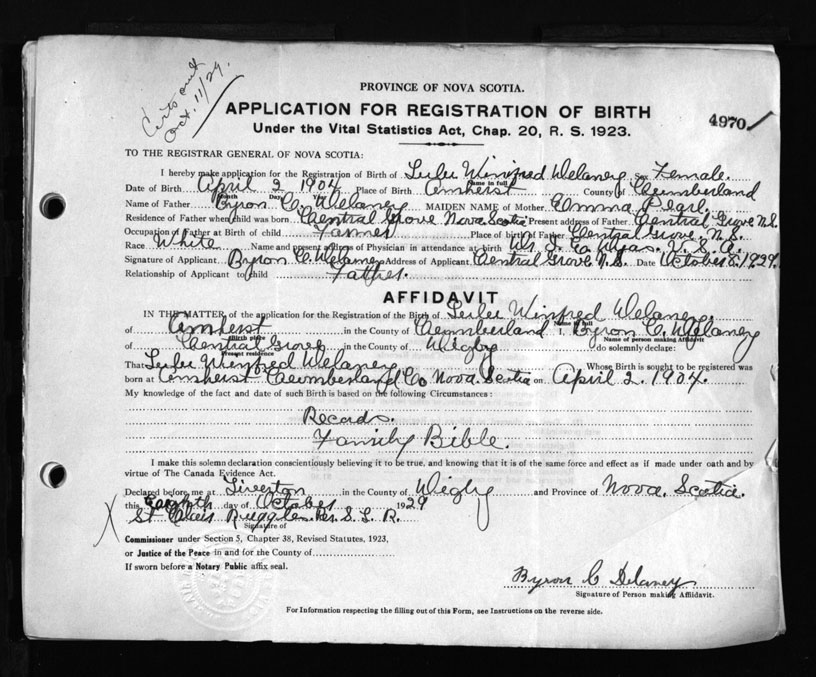 Certs out
Oct. 11/29.
PROVINCE OF NOVA SCOTIA.
APPLICATION FOR REGISTRATION OF BIRTH
4970
Under the Vital Statistics Act, Chap. 20, R. S. 1923.
TO THE REGISTRAR GENERAL OF NOVA SCOTIA:
I hereby make application for the Registration of Birth of Winifred Delaney Sex Female.
Name in full
Date of Birth April 2 1904 Place of Birth Amherst County of Cumberland
Month Day
Name of Father Byron C. Delaney MAIDEN NAME of Mother Emma Pearl
Residence of Father when child was born Central Grove Nova Scotia Present address of Father Central Grove N.S.
Occupation of Father at Birth of child Farmer Place of birth of Father Central Grove N.S.
Race White Name and present address of Physician in attendance at birth U.S.A.
Signature of Applicant Byron C. Delaney Address of Applicant Central Grove N.S. Date October 8. 1929.
Relationship of Applicant to child Father.
AFFIDAVIT
IN THE MATTER of the application for the Registration of the Birth of Winifred Delaney.
Name in full
of Amherst in the County of Cumberland I, Byron C. Delaney
Birth place Name of person making Affidavit
of Central Grove in the County of Digby do solemnly declare:
Present residence
That Winifred Delaney Whose Birth is sought to be registered was
born at Amherst Cumberland Co Nova Scotia on April 2. 1904.
My knowledge of the fact and date of such Birth is based on the following Circumstances:
Records.
Family Bible.
I make this solemn declaration conscientiously believing it to be true, and knowing that it is of the same force and effect as if made under oath and by
virtue of The Canada Evidence Act.
Declared before me at Tiverton in the County of Digby and Province of Nova. Scotia.
this Eighth day of October 1929
X St. Clair Ruggles
Signature of
Commissioner under Section 5, Chapter 38, Revised Statutes, 1923,
or Justice of the Peace in and for the County of
If sworn before a Notary Public affix seal.
Byron C Delaney
Signature of Person making Affidavit.
For Information respecting the filling out of this Form, see Instructions on the reverse side.